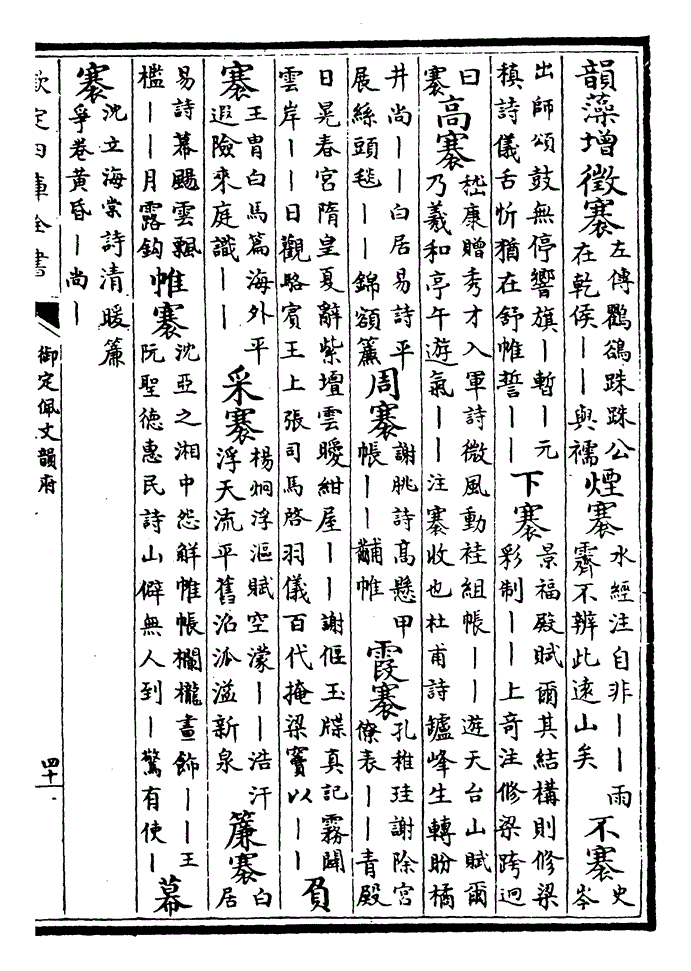 韻藻增徵褰
左傳鸜鵒跦跦公
在乾侯丨丨與襦
煙褰
水經注自非丨丨雨
霽不辨此遠山矣
不褰
史
岑
出師頌鼓無停響旗丨暫丨元
稹詩儀舌忻猶在舒帷誓丨丨
下褰
景福殿賦爾其結構則修梁
彩制丨丨上奇注修梁跨迥
曰
褰
高褰
嵇康贈秀才入軍詩微風動袿組帳丨丨遊天台山賦爾
乃羲和亭午遊氣丨丨注褰收也杜甫詩鑪峰生轉盼橘
井尚丨丨白居易詩平
展絲頭毯丨丨錦額簾
周褰
謝朓詩高懸甲
帳丨丨黼帷
霞褰
孔稚珪謝除宮
僚表丨丨青殿
日晃春宮隋皇夏辭紫壇雲曖紺屋丨丨謝偃玉牒真記霧闢
雲岸丨丨日觀駱賓王上張司馬啓羽儀百代掩梁竇以丨丨
貟
褰
王胄白馬篇海外平
遐險來庭識丨丨
采褰
楊炯浮漚賦空濛丨丨浩汗
浮天流平舊沼泒溢新泉
簾褰
白
居
易詩幕颺雲飄
檻丨丨月露鈎
帷褰
沈亞之湘中怨解帷帳欄櫳畫飾丨丨王
阮聖德惠民詩山僻無人到丨驚有使丨
幕
褰
沈立海棠詩清暖簾
爭卷黃昏丨尚丨
欽定四庫全書
御定佩文韻府
四十